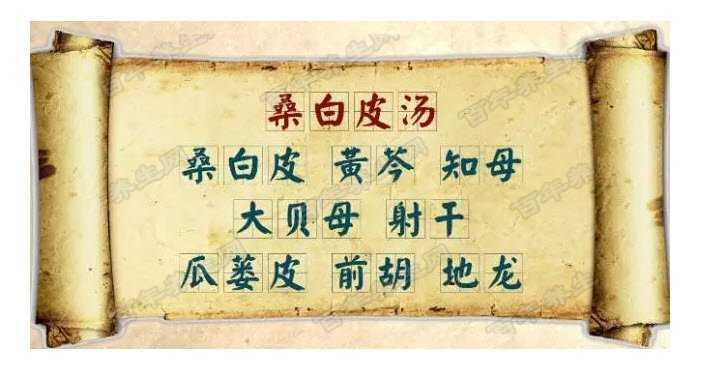 桑白皮汤
桑白皮 黄芩 知母
大贝母 射干
瓜蒌皮 前胡 地龙
百年养生网